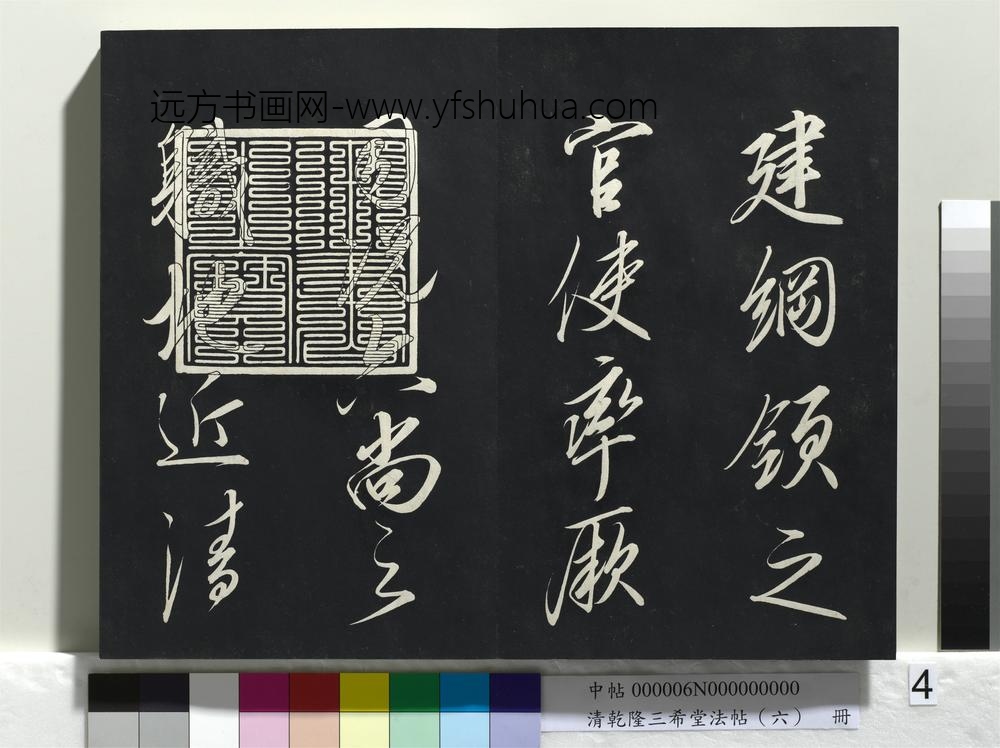 远方书画网-www.yfshuhua.com
建綱領之
官使率厥
司況六尚之
職地近清
中帖 000006N000000000
清乾隆三希堂法帖（六） 冊
4